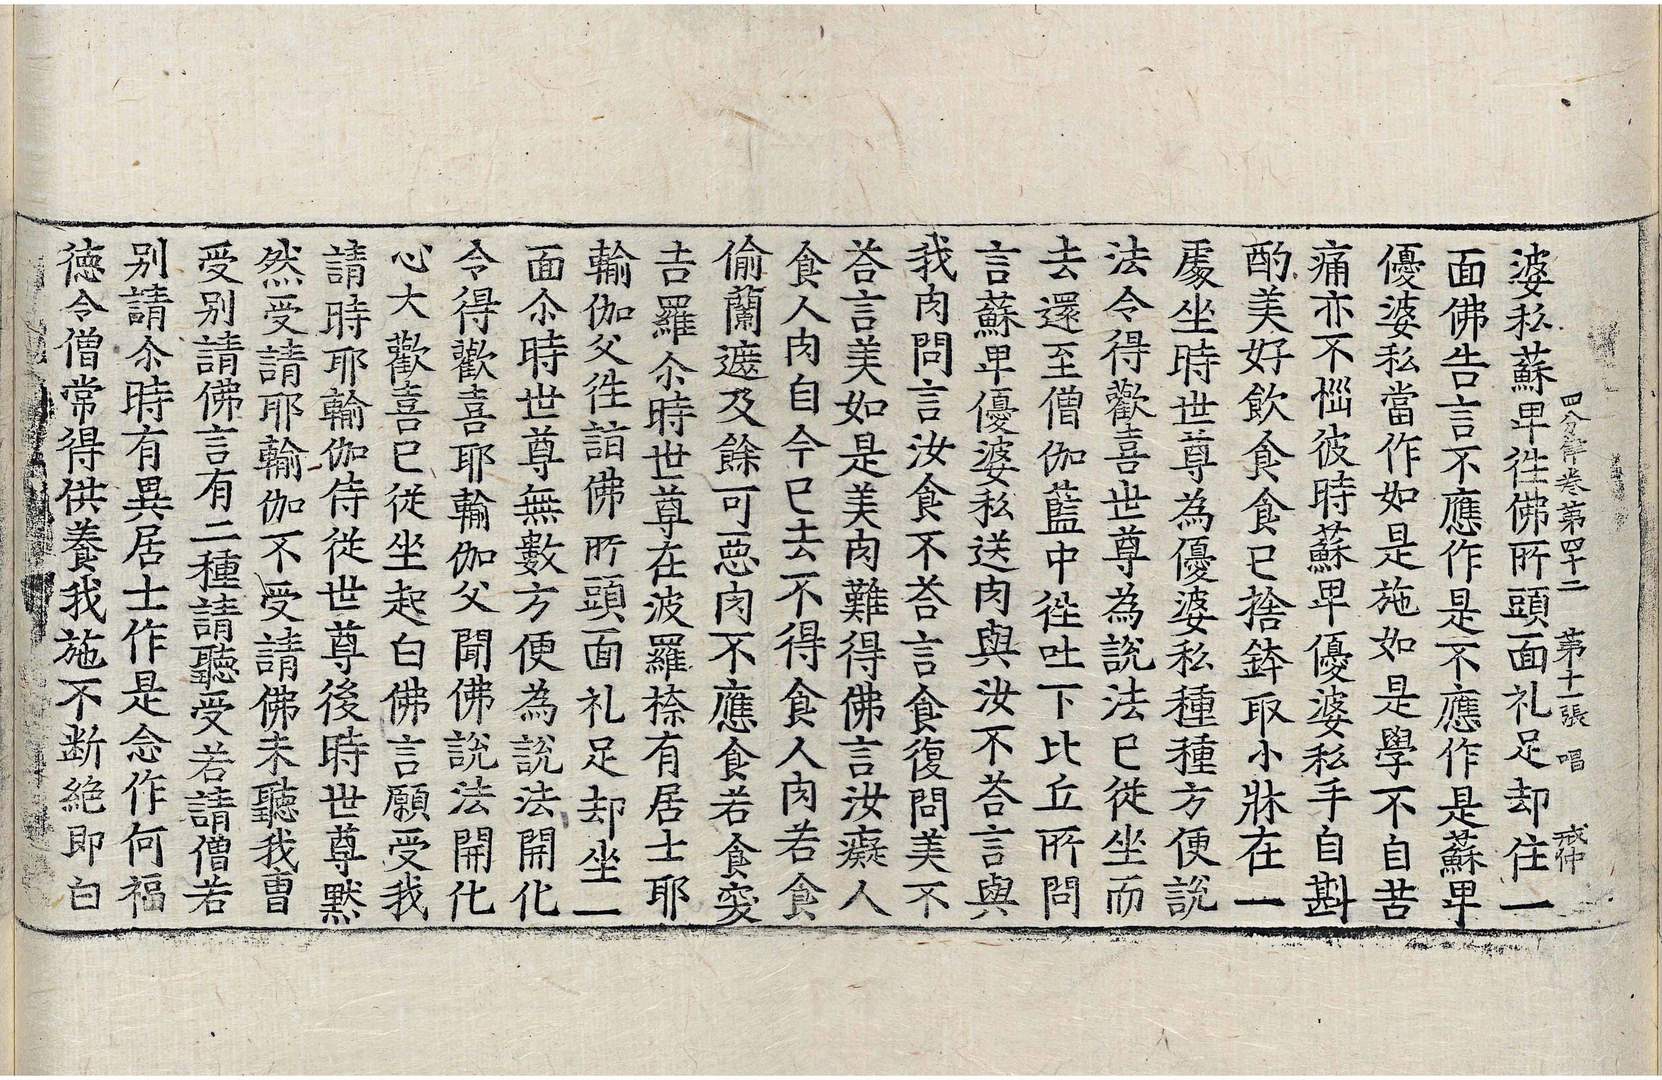 四分律卷第四十二 第十一張 唱 戒仲
婆私蘇卑徃佛所頭面礼足却住一
面佛告言不應作是不應作是蘇卑
優婆私當作如是施如是學不自苦
痛亦不惱彼時蘇卑優婆私手自斟
酌美好飲食食已捨鉢取小牀在一
處坐時世尊為優婆私種種方便說
法令得歡喜世尊為說法已從坐而
去還至僧伽藍中徃吐下比丘所問
言蘇卑優婆私送肉與汝不荅言與
我肉問言汝食不荅言食復問美不
荅言美如是美肉難得佛言汝癡人
食人肉自今已去不得食人肉若食
偷蘭遮及餘可惡肉不應食若食突
吉羅尒時世尊在波羅㮈有居士耶
輸伽父徃詣佛所頭面礼足却坐一
面尒時世尊無數方便為說法開化
令得歡喜耶輸伽父聞佛說法開化
心大歡喜已從坐起白佛言願受我
請時耶輸伽侍從世尊後時世尊默
然受請耶輸伽不受請佛未聽我曹
受別請佛言有二種請聽受若請僧若
別請尒時有異居士作是念作何福
德令僧常得供養我施不断絕即白